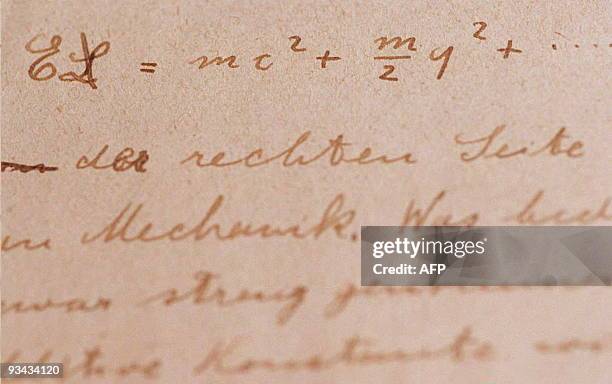 EL = mc² + m/2 q² + ....
der rechten Seite
in Mechanik. Was
zwar streng
Konstante
gettyimages®
Credit: AFP
93434120